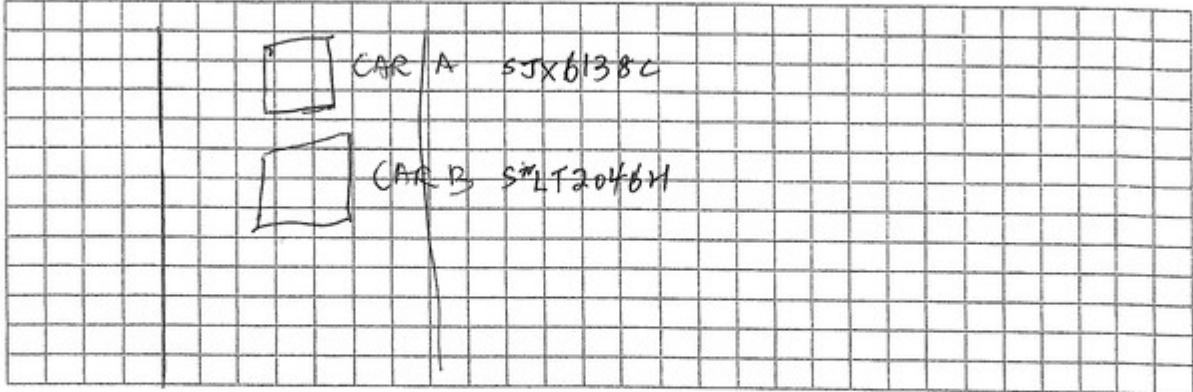 CAR A SJX6138C
CAR B SLT2046H